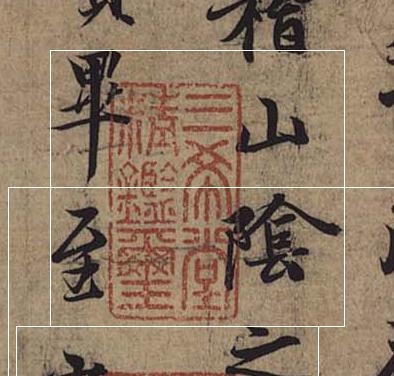 稽山陰之
畢至
三希堂
精鑑璽